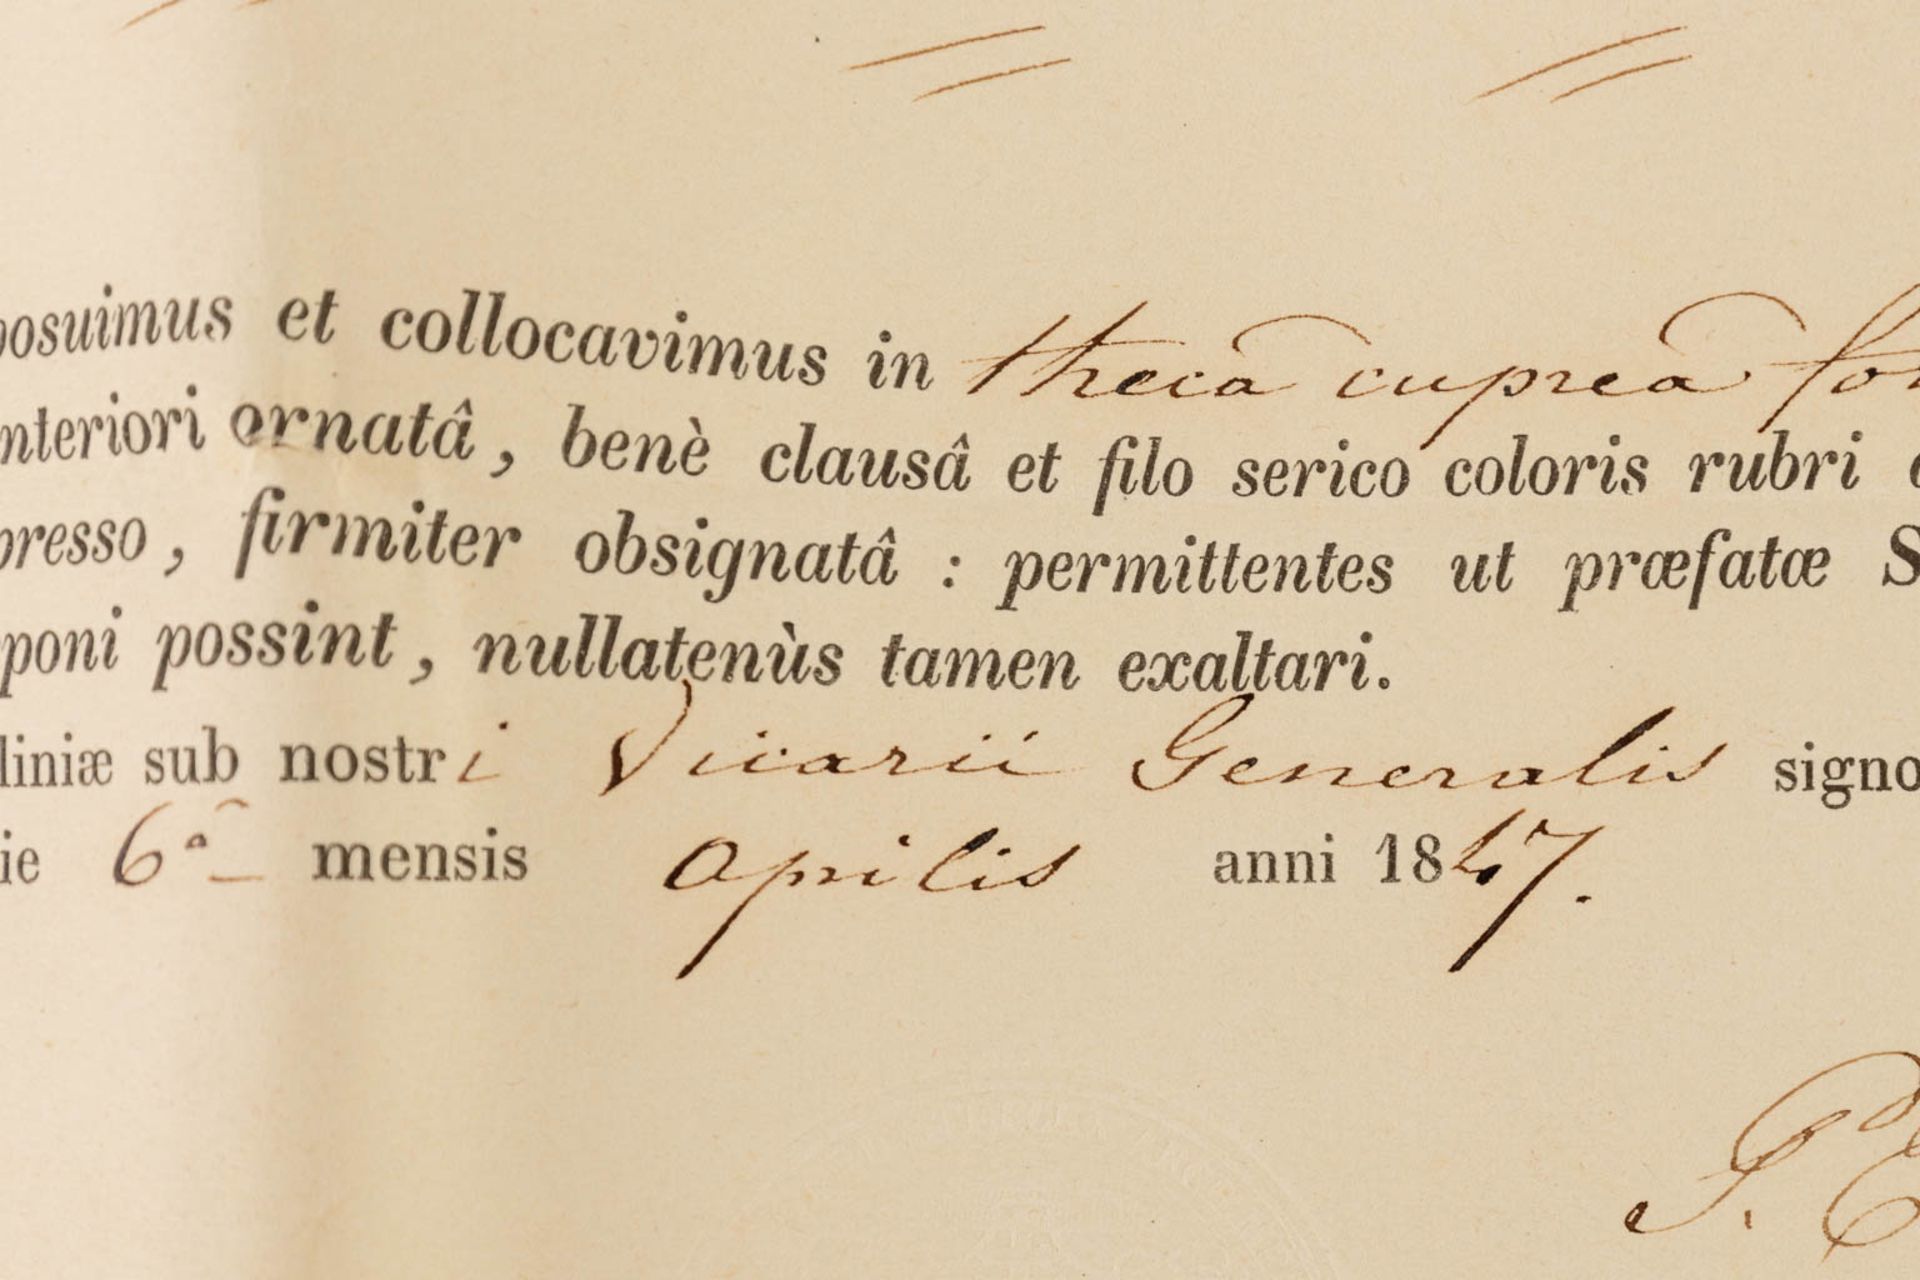 posuimus et collocavimus in thecâ cupreâ for
nteriori ornatâ, benè clausâ et filo serico coloris rubri
presso, firmiter obsignatâ : permittentes ut præfatæ S
poni possint, nullatenùs tamen exaltari.
liniæ sub nostri Vicarii Generalis signo
ie 6ª mensis Aprilis anni 1847.